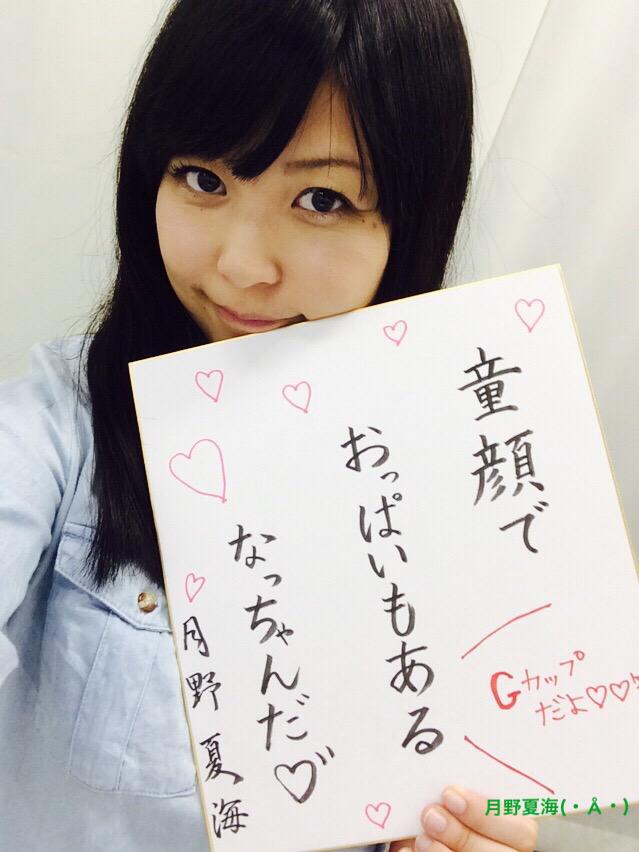 童顔で
おっぱいもある
なっちゃんだ♡
月野夏海
Gカップ
だよ♡♡!!
月野夏海(・Å・)